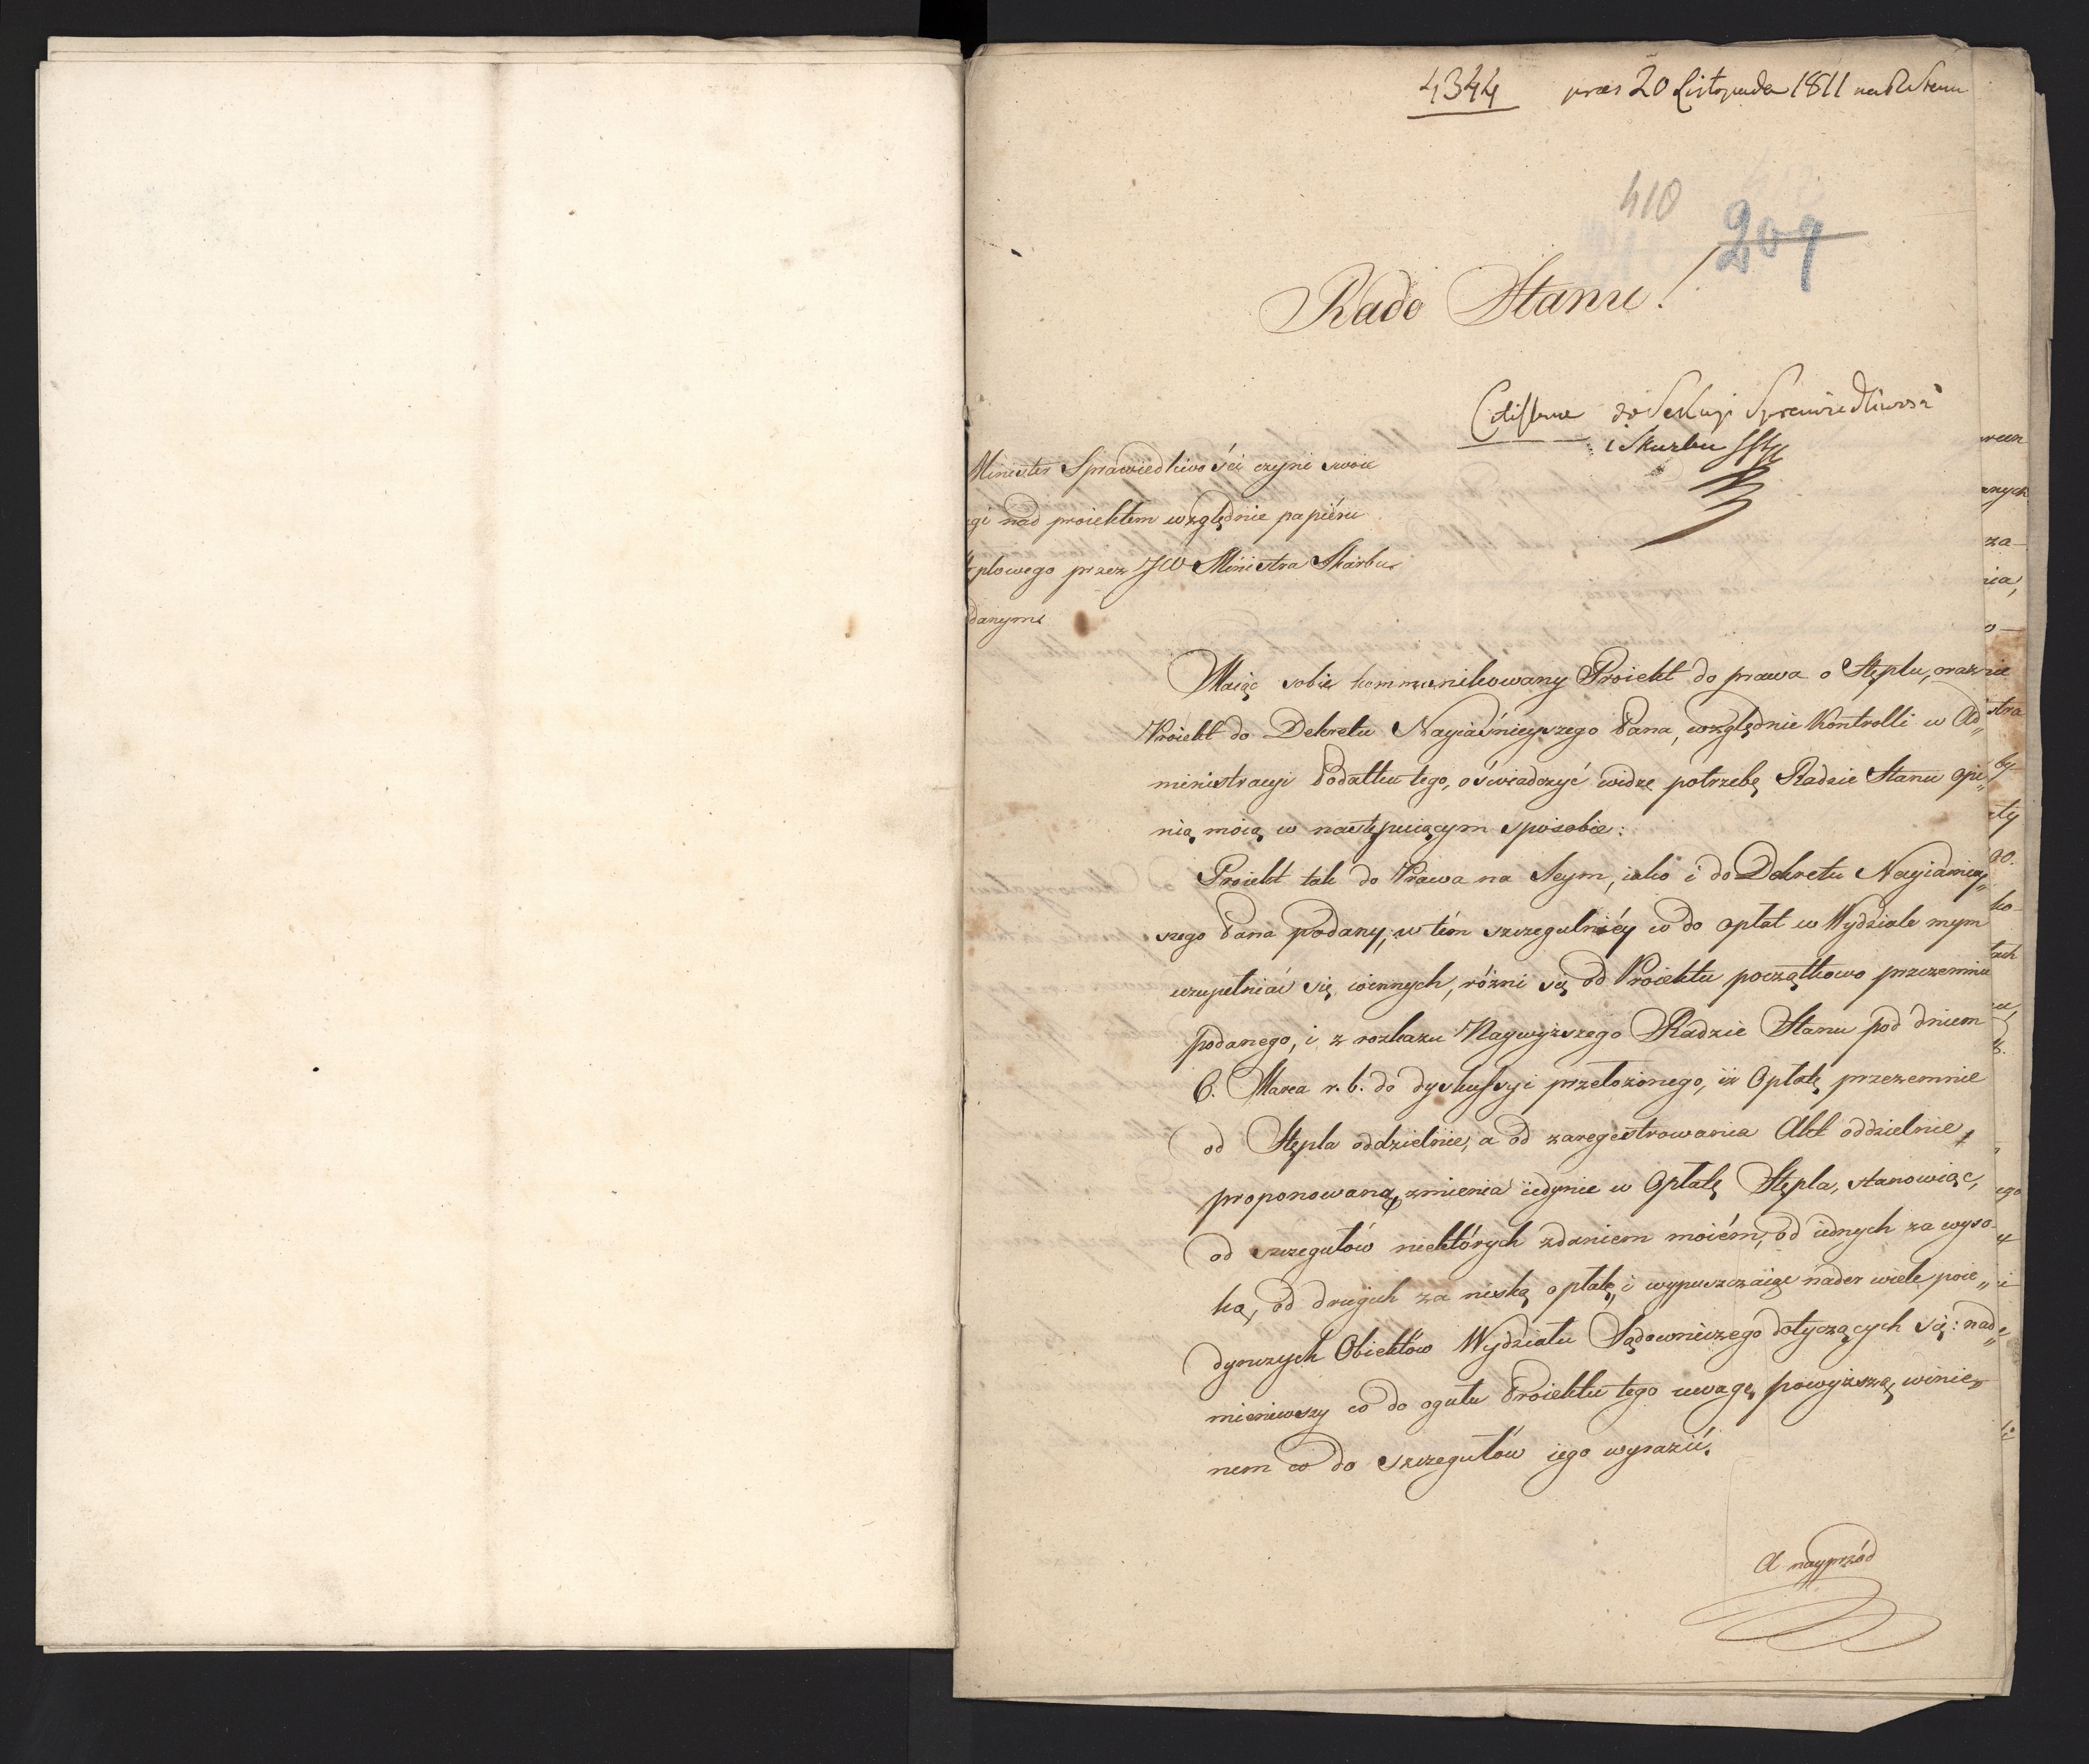 4344 pres 20 Listopada 1811 na R Stanu
410 209
Rado Stanu!
do Sekcyi Sprawiedliwości
i Skarbu
Minister Sprawiedliwości czyni swoie
gi nad proiektem względnie papiéru
plowego przez JW Ministra Skarbu
danym
Maiąc sobie kommunikowany Proiekt do prawa o Stęplu, oraz
Proiekt do Dekretu Nayiaśnieyszego Pana, względnie Kontrolli w Ad„
ministracyi Podatku tego, oświadczyć widzę potrzebę Radzie Stanu opi„
nią moią w następuiącym sposobie:
Proiekt tak do Prawa na Seym, iako i do Dekretu Nayiaśniey„
szego Pana podany, w tém szczegulniéy co do opłat w Wydziale mym
uzupełniać się winnych, różni się od Proiektu początkowo przezemnie
podanego, i z rozkazu Naywyższego Radzie Stanu pod dniem
6. Marca r. b. do dyskussyi przełożonego, iż Opłatę przezemnie
od Stępla oddzielnie, a od zaregestrowania Akt oddzielnie,
proponowaną, zmienia iedynie w Opłatę Stępla, stanowiąc,
od szczegułów niektórych zdaniem moiém, od iednych za wyso„
ką, od drugich za niską opłatę, i wypuszczaiąc nader wiele poie„
dynczych Obiektów Wydziału Sądowniczego dotyczących się: nad„
mieniwszy co do ogułu Proiektu tego uwagę powyższą, winie„
nem co do szczegułów iego wyrazić.
A nayprzód